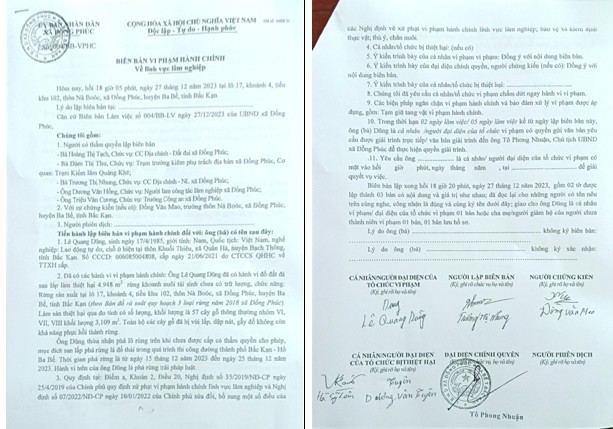 ỦY BAN NHÂN DÂN
XÃ ĐỒNG PHÚC
/BB-VPHC
CỘNG HÒA XÃ HỘI CHỦ NGHĨA VIỆT NAM
Độc lập - Tự do - Hạnh phúc
BIÊN BẢN VI PHẠM HÀNH CHÍNH
Về lĩnh vực lâm nghiệp
Hôm nay, hồi 18 giờ 05 phút, ngày 27 tháng 12 năm 2023 tại lô 17, khoảnh 4, tiểu
khu 102, thôn Nà Boóc, xã Đồng Phúc, huyện Ba Bể, tỉnh Bắc Kạn.
Lý do lập biên bản tại:
Căn cứ Biên bản Làm việc số 004/BB-LV ngày 27/12/2023 của UBND xã Đồng
Phúc,
Chúng tôi gồm:
1. Người có thẩm quyền lập biên bản
- Bà Hoàng Thị Tạch, Chức vụ: CC Địa chính - Đất đai xã Đồng Phúc,
- Bà Đàm Thị Thu, Chức vụ: Trạm trưởng kiêm phụ trách địa bàn xã Đồng Phúc, Cơ
quan: Trạm Kiểm lâm Quảng Khê;
- Bà Trương Thị Nhung, Chức vụ: CC Địa chính - NL xã Đồng Phúc,
- Ông Dương Văn Hồng, Chức vụ: Người làm công tác lâm nghiệp xã Đồng Phúc,
- Ông Triệu Văn Cương, Chức vụ: Trưởng Công an xã Đồng Phúc.
2. Với sự chứng kiến (nếu có): Đồng Văn Mao, trưởng thôn Nà Boóc, xã Đồng Phúc,
huyện Ba Bể, tỉnh Bắc Kạn.
3. Người phiên dịch:
Tiến hành lập biên bản vi phạm hành chính đối với: ông (bà) có tên sau đây:
1. Lê Quang Dũng, sinh ngày 17/4/1985, giới tính: Nam, Quốc tịch: Việt Nam, nghề
nghiệp: Lao động tự do, chỗ ở hiện tại thôn Khuổi Thiêu, xã Quân Hà, huyện Bạch Thông,
tỉnh Bắc Kạn. Số CCCD: 006085004808, cấp ngày 21/06/2021 do CTCCS QLHC về
TTXH cấp.
2. Đã có các hành vi vi phạm hành chính: Ông Lê Quang Dũng đã có hành vi đổ đất đá
san lấp làm thiệt hại 4.948 m² rừng khoanh nuôi tái sinh chưa có trữ lượng, chức năng:
Rừng sản xuất tại lô 17, khoảnh 4, tiểu khu 102, thôn Nà Boóc, xã Đồng Phúc, huyện Ba
Bể, tỉnh Bắc Kạn (theo Bản đồ rà soát quy hoạch 3 loại rừng năm 2018 xã Đồng Phúc).
Lâm sản thiệt hại qua đo tính có số lượng, khối lượng là 57 cây gỗ thông thường nhóm VI,
VII, VIII khối lượng 3,109 m³. Toàn bộ các cây gỗ đã bị vùi lấp, dập nát, gẫy đổ không còn
khả năng phục hồi thành rừng.
Ông Dũng thừa nhận phá lô rừng trên khi chưa được cấp có thẩm quyền cho phép,
mục đích san lấp phá rừng là đổ đất thải trong quá trình thi công đường thành phố Bắc Kạn - Hồ
Ba Bể. Thời gian phá rừng là từ ngày 15 tháng 12 năm 2023 đến ngày 25 tháng 12 năm
2023. Hành vi nêu trên của ông Dũng là phá rừng trái pháp luật.
3. Quy định tại: Điểm a, Khoản 2, Điều 20, Nghị định số 35/2019/NĐ-CP ngày
25/4/2019 của Chính phủ quy định xử phạt vi phạm hành chính lĩnh vực lâm nghiệp và Nghị
định số 07/2022/NĐ-CP ngày 10/01/2022 của Chính phủ sửa đổi, bổ sung một số điều của
các Nghị định về xử phạt vi phạm hành chính lĩnh vực lâm nghiệp; bảo vệ và kiểm dịch
thực vật; thú y, chăn nuôi.
4. Cá nhân/tổ chức bị thiệt hại: (nếu có)
5. Ý kiến trình bày của cá nhân vi phạm vi phạm: Đồng ý với nội dung biên bản.
6. Ý kiến trình bày của đại diện chính quyền, người chứng kiến (nếu có): Đồng ý với
nội dung biên bản.
7. Ý kiến trình bày của cá nhân/tổ chức bị thiệt hại (nếu có):
8. Chúng tôi đã yêu cầu cá nhân/tổ chức vi phạm chấm dứt ngay hành vi vi phạm.
9. Các biện pháp ngăn chặn vi phạm hành chính và bảo đảm xử lý vi phạm được áp
dụng, gồm: Tạm giữ tang vật vi phạm hành chính.
10. Trong thời hạn 02 ngày làm việc/ 05 ngày làm việc kể từ ngày lập biên bản này,
ông (bà) Dũng là cá nhân /người đại diện của tổ chức vi phạm có quyền gửi văn bản yêu
cầu được giải trình trực tiếp/ văn bản giải trình đến ông Tô Phong Nhuận, Chủ tịch UBND
xã Đồng Phúc để thực hiện quyền giải trình.
11. Yêu cầu ông là cá nhân/ người đại diện của tổ chức vi phạm có
mặt vào hồi giờ phút, ngày tháng năm , tại để giải
quyết vụ việc.
Biên bản lập xong hồi 18 giờ 20 phút, ngày 27 tháng 12 năm 2023, gồm 02 tờ được
lập thành 03 bản có nội dung và giá trị như nhau; đã đọc lại cho những người có tên nêu
trên cùng nghe, công nhận là đúng và cùng ký tên dưới đây; giao cho ông Dũng là cá nhân
vi phạm/ đại diện của tổ chức vi phạm 01 bản hoặc cha mẹ/người giám hộ của người chưa
thành niên vi phạm 01 bản, 01 bản lưu hồ sơ.
Lý do ông (bà) không ký biên bản:
Lý do ông (bà) không ký xác nhận:
CÁ NHÂN/NGƯỜI ĐẠI DIỆN CỦA NGƯỜI LẬP BIÊN BẢN NGƯỜI CHỨNG KIẾN
TỔ CHỨC VI PHẠM (Ký, ghi rõ chức vụ họ và tên) (Ký, ghi rõ họ và tên)
(Ký, ghi rõ họ và tên)
Lê Quang Dũng Trương Thị Nhung Đồng Văn Mao
CÁ NHÂN/NGƯỜI ĐẠI DIỆN ĐẠI DIỆN CHÍNH QUYỀN NGƯỜI PHIÊN DỊCH
CỦA TỔ CHỨC BỊ THIỆT HẠI (Ký, ghi rõ họ và tên)
(Ký, ghi rõ họ và tên)
Tô Phong Nhuận